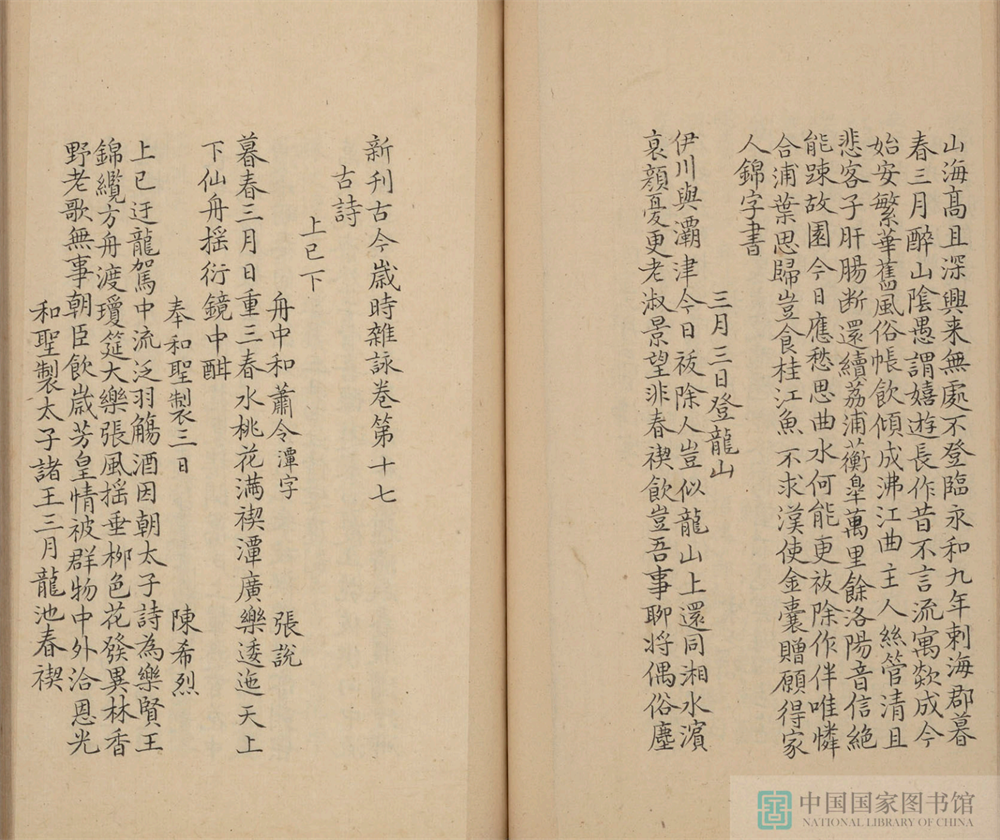 山海髙且深興来無處不登臨永和九年刺海郡暮
春三月醉山陰愚謂嬉遊長作昔不言流寓欻成今
始安繁華舊風俗帳飲傾成沸江曲主人絲管清且
悲客子肝腸斷還續荔浦蘅皐萬里餘洛陽音信絶
能踈故園今日應愁思曲水何能更祓除作伴唯憐
合浦葉思歸豈食桂江魚不求漢使金囊贈願得家
人錦字書
三月三日登龍山
伊川與灞津今日祓除人豈似龍山上還同湘水濱
哀顔憂更老淑景望非春禊飲豈吾事聊将偶俗塵
新刊古今歲時雜詠卷第十七
古詩
上巳下
舟中和蕭令潭字 張説
暮春三月日重三春水桃花满禊潭廣樂逶迤天上
下仙舟揺衍鏡中酣
奉和聖製三日 陳希烈
上巳迂龍駕中流泛羽觴酒因朝太子詩為樂賢王
錦纜方舟渡瓊筵大樂張風揺垂栁色花發異林香
野老歌無事朝臣飲歲芳皇情被群物中外洽恩光
和聖製太子諸王三月龍池春禊
中国国家图书馆
NATIONAL LIBRARY OF CHINA